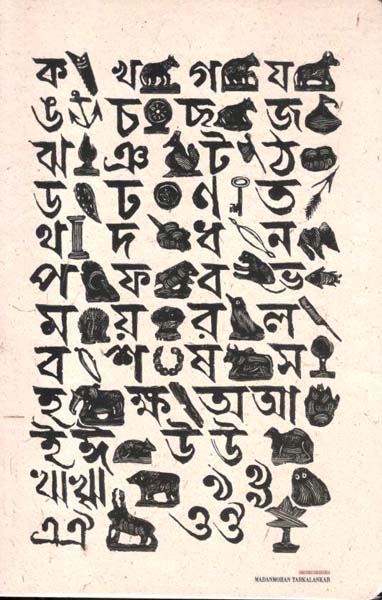 ক খ গ ঘ
ঙ চ ছ জ
ঝ ঞ ট ঠ
ড ঢ ণ ত
থ দ ধ ন
প ফ ব ভ
ম য় র ল
ব শ ষ স
হ ক্ষ অ আ
ই ঈ উ ঊ
ঋ ৠ ঌ ৡ
এ ঐ ও ঔ
MADANMOHAN TARKALANKAR